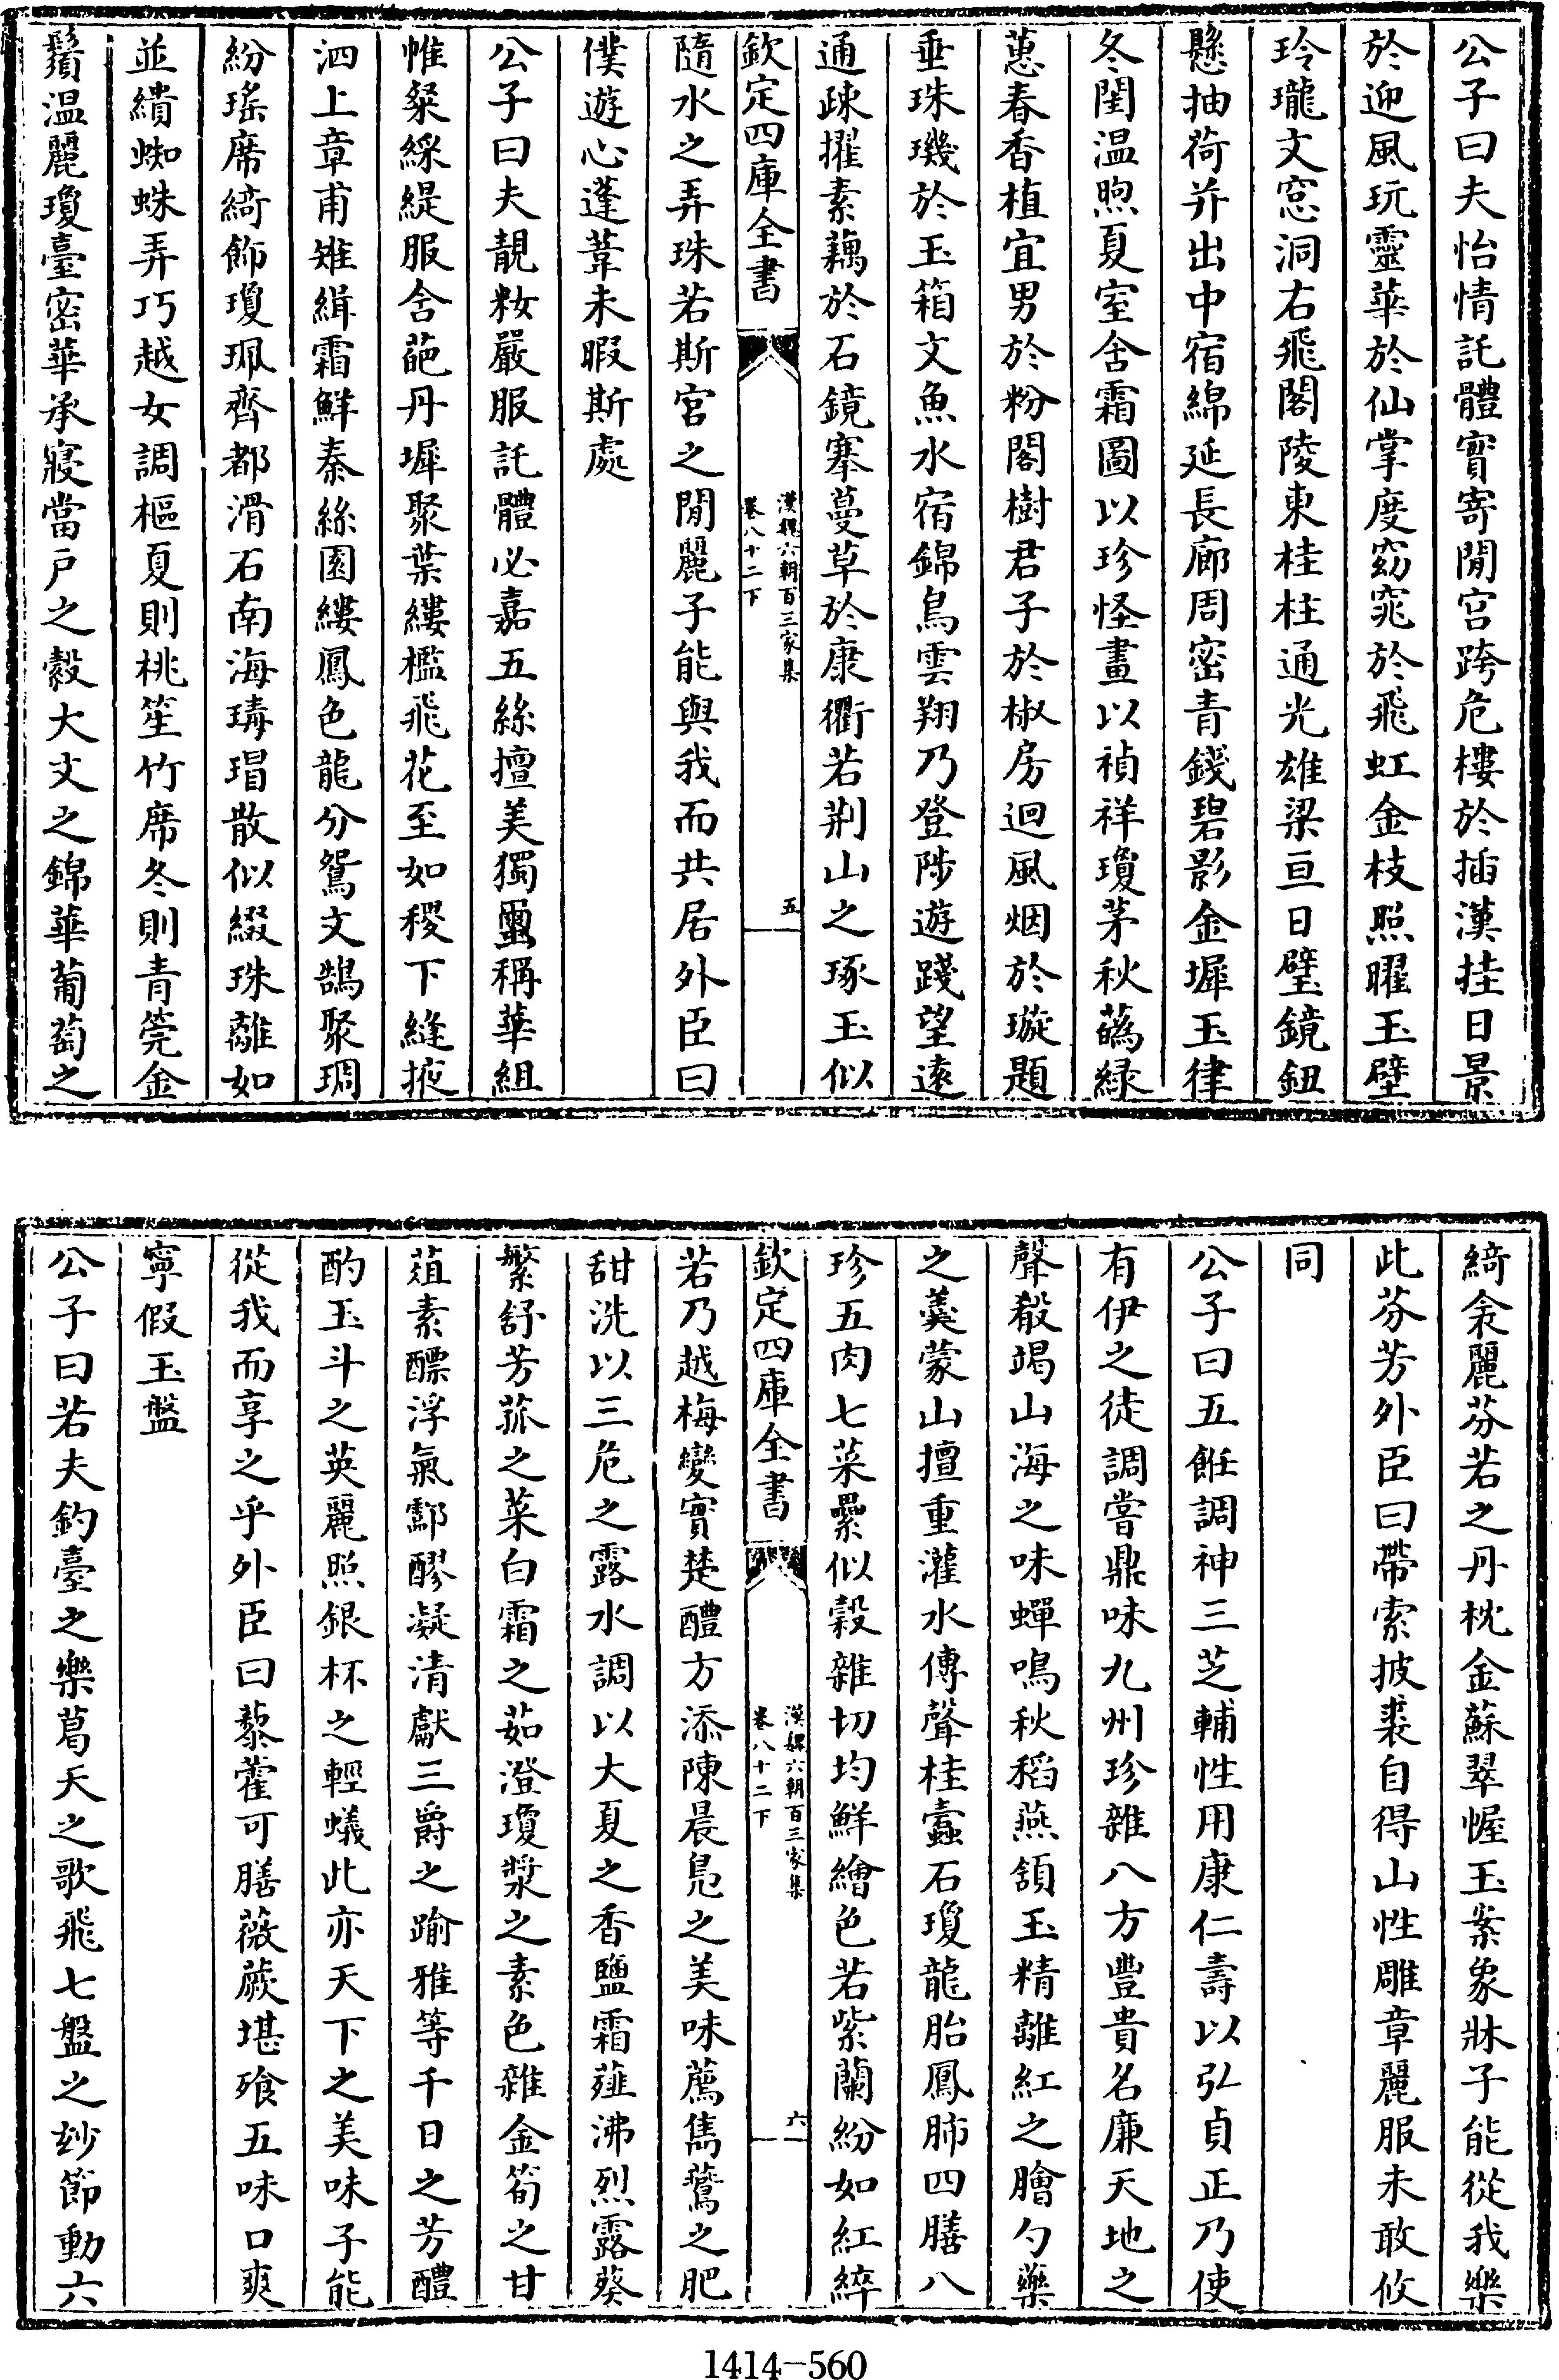 公子曰夫怡情託體實寄閒宫跨危樓於插漢挂日景
於迎風玩靈華於仙掌度窈窕於飛虹金枝照曜玉壁
玲瓏文窓洞右飛閣陵東桂柱通光雄梁亘日璧鏡鈕
懸抽荷并出中宿綿延長廊周密青錢碧影金墀玉律
冬閨温煦夏室含霜圖以珍怪畫以禎祥瓊茅秋蒍緑
蕙春香植宜男於粉閣樹君子於椒房迴風烟於璇題
垂珠璣於玉箱文魚水宿錦鳥雲翔乃登陟遊踐望遠
通疎擢素藕於石鏡搴蔓草於康衢若荆山之琢玉似
欽定四庫全書
漢魏六朝百三家集
卷八十二下
五
隨水之弄珠若斯宮之閒麗子能與我而共居外臣曰
僕遊心蓬葦未暇斯處
公子曰夫靚糚嚴服託體必嘉五絲擅美獨壐稱華組
帷粲綵緹服含葩丹墀聚葉縷檻飛花至如稷下縫掖
泗上章甫雉緝霜鮮秦絲園縷鳳色龍分鴛文鵠聚琱
紛瑤席綺飾瓊珮齊都滑石南海瑇瑁散似綴珠離如
並繢蜘蛛弄巧越女調樞夏則桃笙竹席冬則青筦金
鬚温麗瓊臺密華承寢當戶之縠大丈之錦華葡萄之
綺衾麗芬若之丹枕金蘇翠幄玉案象牀子能從我樂
此芬芳外臣曰帶索披裘自得山性雕章麗服未敢攸
同
公子曰五飪調神三芝輔性用康仁壽以弘貞正乃使
有伊之徒調嘗鼎味九州珍雜八方豐貴名廉天地之
聲殽竭山海之味蟬鳴秋稻燕頷玉精離紅之膾勺藥
之羹蒙山擅重灌水傳聲桂蠹石瓊龍胎鳳肺四膳八
珍五肉七菜纍似縠雜切均鮮繪色若紫蘭紛如紅綷
欽定四庫全書
漢魏六朝百三家集
卷八十二下
六
若乃越梅變實楚醴方添陳晨凫之美味薦雋鷩之肥
甜洗以三危之露水調以大夏之香鹽霜薤沸烈露葵
繁舒芳菰之菜白霜之茹澄瓊漿之素色雜金筍之甘
葅素醥浮氣酃醪凝清獻三爵之踰雅等千日之芳醴
酌玉斗之英麗照銀杯之輕蟻此亦天下之美味子能
從我而享之乎外臣曰藜藿可膳薇蕨堪飱五味口爽
寧假玉盤
公子曰若夫鈞臺之樂葛天之歌飛七盤之玅節動六
1414-560